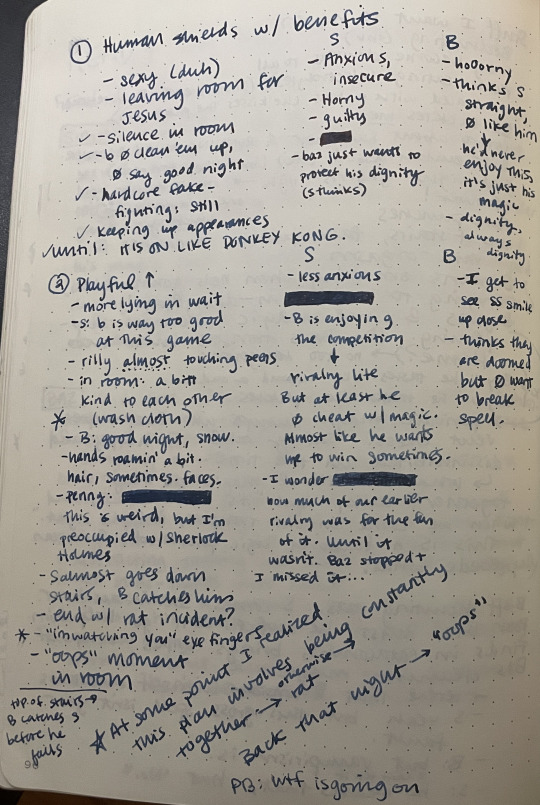 ① Human shields w/ benefits
- sexy (duh)
- leaving room for
Jesus
✓ - silence in room
✓ - b ∅ clean 'em up,
∅ say good night
✓ - hardcore fake-
fighting: still
✓ keeping up appearances
✓ until: IT'S ON LIKE DONKEY KONG.
S
- Anxious,
insecure
- Horny
- guilty
-
- baz just wants to
protect his dignity
(s thinks)
B
- hoOorny
- thinks S
straight,
∅ like him
↓
he'd never
enjoy this,
it's just his
magic
- dignity,
always
dignity
② Playful ↑
- more lying in wait
- s: b is way too good
at this game
- rilly almost touching peens
- in room: a bit
kind to each other
* (wash cloth)
- B: good night, snow.
- hands roamin' a bit.
hair, sometimes. faces.
- penny:
this is weird, but I'm
preoccupied w/ Sherlock
Holmes
- S almost goes down
stairs, B catches him
- end w/ rat incident?
* - "im watching you" eye fingers
- "oops" moment
in room
S
- less anxious
- B is enjoying
the competition
↓
rivalry lite
But at least he
∅ cheat w/ magic.
Almost like he wants
me to win sometimes.
- I wonder
how much of our earlier
rivalry was for the fun
of it. Until it
wasn't. Baz stopped +
I missed it...
B
- I get to
see SS smile
up close
- thinks they
are doomed
but ∅ want
to break
spell.
top of stairs →
B catches S
before he
falls
★ At some point I realized
this plan involves being constantly
together → rat
otherwise →
Back that night → "oops"
PB: wtf is going on